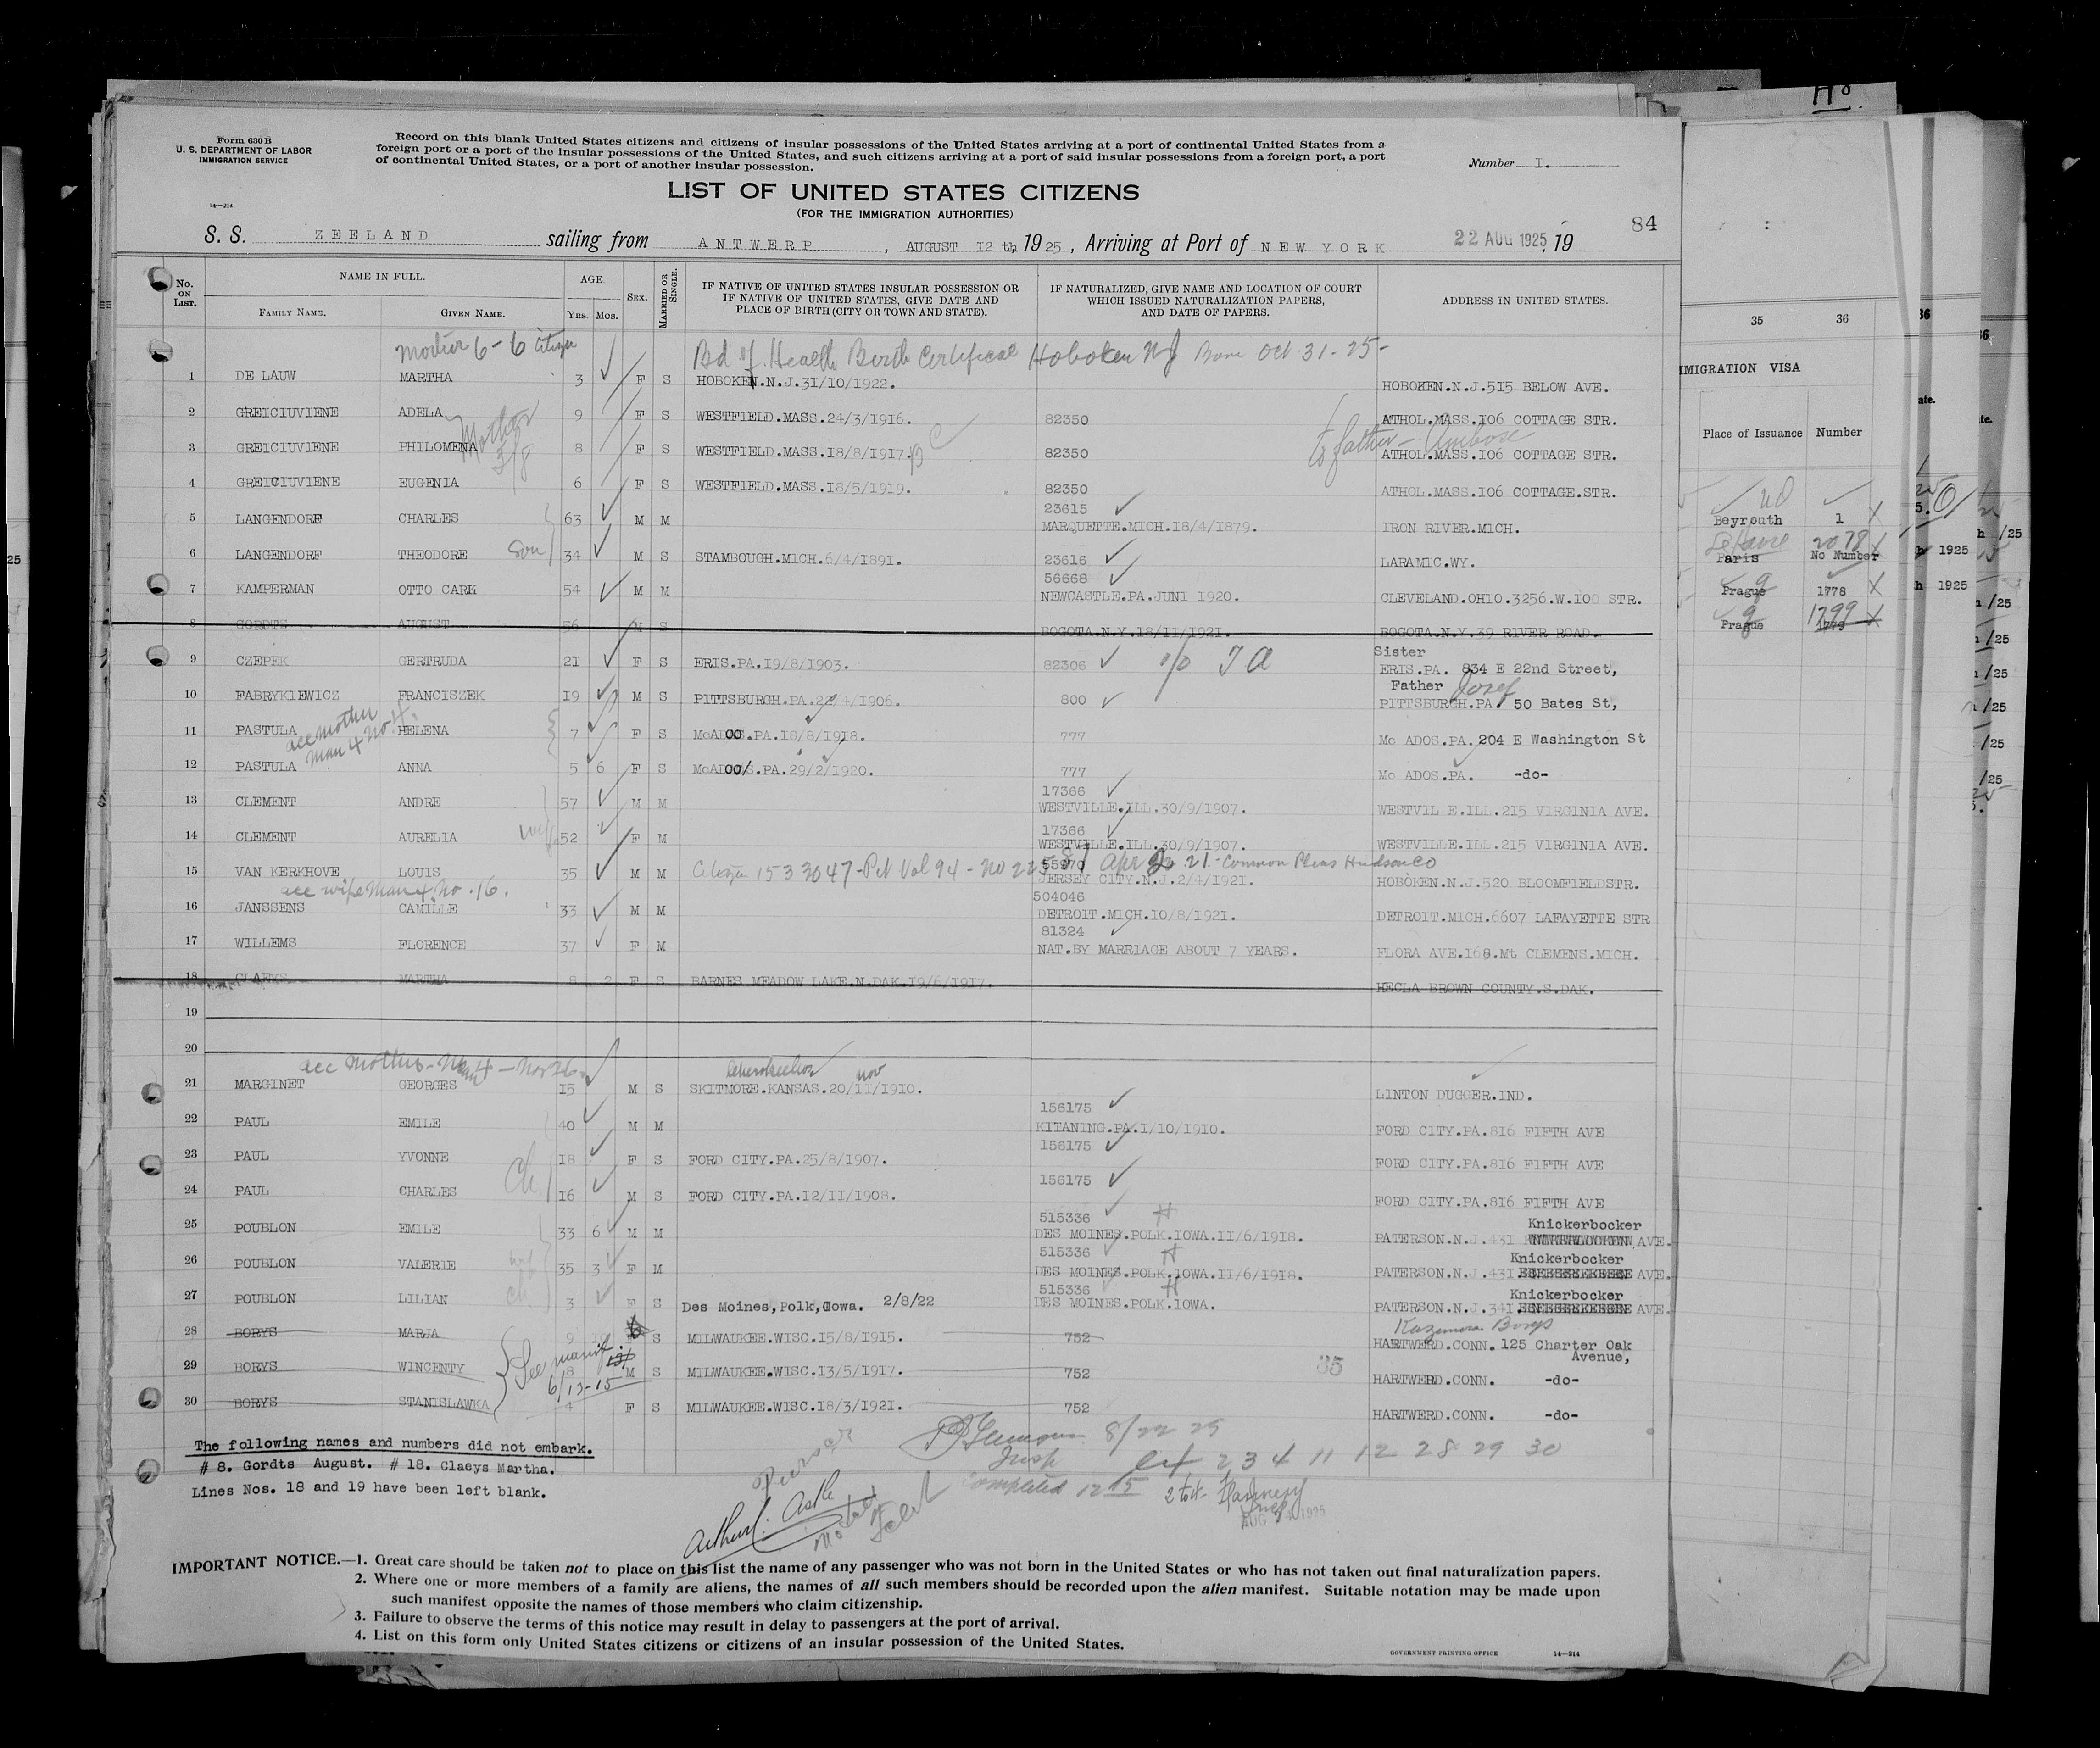 Form 630 B
U. S. DEPARTMENT OF LABOR
IMMIGRATION SERVICE
14—214
Record on this blank United States citizens and citizens of insular possessions of the United States arriving at a port of continental United States from a
foreign port or a port of the insular possessions of the United States, and such citizens arriving at a port of said insular possessions from a foreign port, a port
of continental United States, or a port of another insular possession.
Number I.
LIST OF UNITED STATES CITIZENS
(FOR THE IMMIGRATION AUTHORITIES)
84
S. S. ZEELAND sailing from ANTWERP, AUGUST I2 th, 1925, Arriving at Port of NEW YORK 22 AUG 1925, 19
No. ON LIST. NAME IN FULL. AGE. SEX. MARRIED OR SINGLE. IF NATIVE OF UNITED STATES INSULAR POSSESSION OR IF NATIVE OF UNITED STATES, GIVE DATE AND PLACE OF BIRTH (CITY OR TOWN AND STATE). IF NATURALIZED, GIVE NAME AND LOCATION OF COURT WHICH ISSUED NATURALIZATION PAPERS, AND DATE OF PAPERS. ADDRESS IN UNITED STATES.
FAMILY NAME. GIVEN NAME. YRS. MOS.
6-6 citizen Bd of Health Birth Certificate Hoboken NJ Born Oct 31-25-
1 DE LAUW MARTHA 3 F S HOBOKEN.N.J.31/10/1922. HOBOKEN.N.J.515 BELOW AVE.
2 GREICIUVIENE ADELA 9 F S WESTFIELD.MASS.24/3/1916. 82350 ATHOL.MASS.I06 COTTAGE STR.
Mother 3/8 to father - Ambose
3 GREICIUVIENE PHILOMENA 8 F S WESTFIELD.MASS.I8/8/1917. 82350 ATHOL.MASS.I06 COTTAGE STR.
4 GREICIUVIENE EUGENIA 6 F S WESTFIELD.MASS.I8/5/1919. 82350 ATHOL.MASS.I06 COTTAGE.STR.
5 LANGENDORF CHARLES 63 M M 23615 MARQUETTE.MICH.I8/4/1879. IRON RIVER.MICH.
6 LANGENDORF THEODORE son 34 M S STAMBOUGH.MICH.6/4/1891. 23616 LARAMIC.WY.
7 KAMPERMAN OTTO CARK 54 M M 56668 NEWCASTLE.PA.JUNI 1920. CLEVELAND.OHIO.3256.W.100 STR.
8 GORDTS AUGUST 56 M S BOGOTA.N.Y.18/11/1921. BOGOTA.N.Y.39 RIVER ROAD.
9 CZEPEK GERTRUDA 21 F S ERIS.PA.I9/8/1903. 82306 Sister ERIS.PA. 834 E 22nd Street,
10 FABRYKIEWICZ FRANCISZEK 19 M S PITTSBURGH.PA. /4/1906. 800 Father Josef PITTSBURGH.PA 50 Bates St,
acc mother man 4 No 4.
11 PASTULA HELENA 7 F S McADOO.PA.I8/8/1918. 777 Mc ADOS.PA. 204 E Washington St
12 PASTULA ANNA 5 6 F S McADOO.PA.29/2/1920. 777 Mc ADOS.PA. -do-
13 CLEMENT ANDRE 57 M M 17366 WESTVILLE.ILL.30/9/1907. WESTVILLE.ILL.215 VIRGINIA AVE.
14 CLEMENT AURELIA wife 52 F M 17366 WESTVILLE.ILL.30/9/1907. WESTVILLE.ILL.215 VIRGINIA AVE.
Citizen 1533047-Pet Vol 94- No Apr 21- Common Pleas Hudson CO
15 VAN KERKHOVE LOUIS 35 M M 55970 JERSEY CITY.N.J.2/4/1921. HOBOKEN.N.J.520 BLOOMFIELDSTR.
acc wife Man 4 No. 16.
16 JANSSENS CAMILLE 33 M M 504046 DETROIT.MICH.10/8/1921. DETROIT.MICH.6607 LAFAYETTE STR
17 WILLEMS FLORENCE 37 F M 81324 NAT.BY MARRIAGE ABOUT 7 YEARS. FLORA AVE.168.Mt CLEMENS.MICH.
18 CLAEYS MARTHA 8 2 F S BARNES MEADOW LAKE.N.DAK.I9/6/1917. HECLA BROWN COUNTY.S.DAK.
19
20
acc Mother - Man 4 - No 26
21 MARGINET GEORGES 15 M S SKITMORE.KANSAS.20/11/1910. nov LINTON DUGGER.IND.
22 PAUL EMILE 40 M M 156175 KITANING.PA.1/10/1910. FORD CITY.PA.816 FIFTH AVE
23 PAUL YVONNE 18 F S FORD CITY.PA.25/8/1907. 156175 FORD CITY.PA.816 FIFTH AVE
24 PAUL CHARLES ch 16 M S FORD CITY.PA.12/11/1908. 156175 FORD CITY.PA.816 FIFTH AVE
25 POUBLON EMILE 33 6 M M 515336 DES MOINES.POLK.IOWA.II/6/1918. PATERSON.N.J.431 Knickerbocker AVE.
26 POUBLON VALERIE wf 35 3 F M 515336 DES MOINES.POLK.IOWA.II/6/1918. PATERSON.N.J.431 Knickerbocker AVE.
27 POUBLON LILIAN ch 3 F S Des Moines,Polk,Iowa. 2/8/22 515336 DES MOINES.POLK.IOWA. PATERSON.N.J.341 Knickerbocker AVE.
28 BORYS MARJA 9 S MILWAUKEE.WISC.I5/8/1915. 752 Kazimera Borys HARTWERD.CONN. 125 Charter Oak Avenue,
See manif 6/13-15
29 BORYS WINCENTY 8 M S MILWAUKEE.WISC.13/5/1917. 752 HARTWERD.CONN. -do-
30 BORYS STANISLAWKA 4 F S MILWAUKEE.WISC.18/3/1921. 752 HARTWERD.CONN. -do-
The following names and numbers did not embark.
# 8. Gordts August. # 18. Claeys Martha.
Lines Nos. 18 and 19 have been left blank.
8/22 25
Insp
2 3 4 11 12 28 29 30
Completed 12 15
Flannery
Insp
AUG 1925
Purser
Arthur Castle
IMPORTANT NOTICE.—1. Great care should be taken not to place on this list the name of any passenger who was not born in the United States or who has not taken out final naturalization papers.
2. Where one or more members of a family are aliens, the names of all such members should be recorded upon the alien manifest. Suitable notation may be made upon
such manifest opposite the names of those members who claim citizenship.
3. Failure to observe the terms of this notice may result in delay to passengers at the port of arrival.
4. List on this form only United States citizens or citizens of an insular possession of the United States.
GOVERNMENT PRINTING OFFICE 14—214
35 36
MIGRATION VISA
Place of Issuance Number
Beyrouth 1
Le Havre 2079
Paris No Number
Prague 1778
Prague 1799
1925
1925